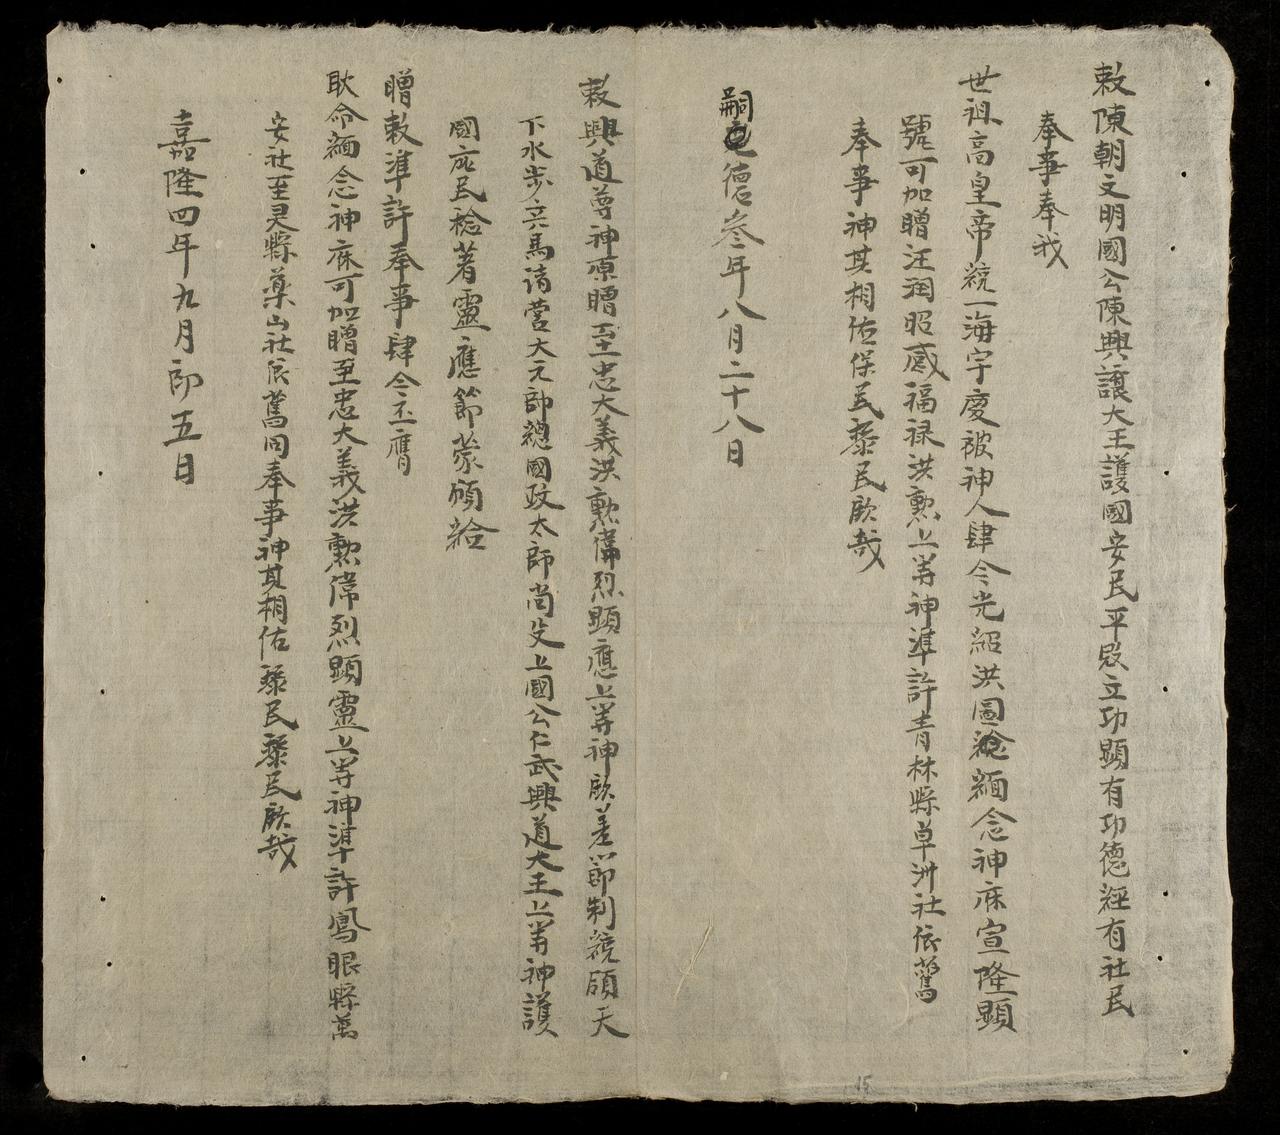 敕陳朝文明國公陳興讓大王護國安民平賊立功顯有功德經有社民
奉事奉我
世祖高皇帝統一海宇慶被神人肆今光紹洪圖緬念神庥宣隆顯
號可加贈汪潤昭感福禄洪勲上等神準許青林縣草洲社依舊
奉事神其相佑保我黎民欽哉
嗣德叁年八月二十八日
敕興道尊神原贈至忠大義洪勲偉烈顯應上等神欽差節制統領天
下水步兵馬諸營大元帥總國政太師尚父上國公仁武興道大王上等神護
國庇民稔著靈應節蒙頒給
贈敕準許奉事肆今丕膺
耿命緬念神庥可加贈至忠大義洪勲偉烈顯靈上等神準許鳳眼縣萬
安社至灵縣藥山社依舊同奉事神其相佑黎民黎民欽哉
嘉隆四年九月初五日
15